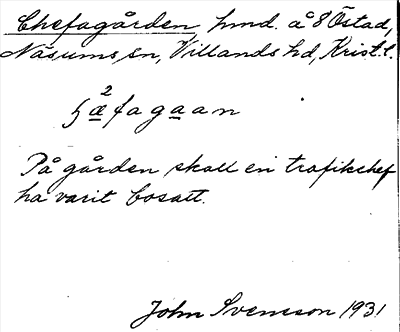 Chefagården, hmd. å 8 Östad,
Näsums sn, Villands hd, Krist. l.
ꞔæ²fagaan
På gården skall en trafikchef
ha varit bosatt.
John Svensson 1931